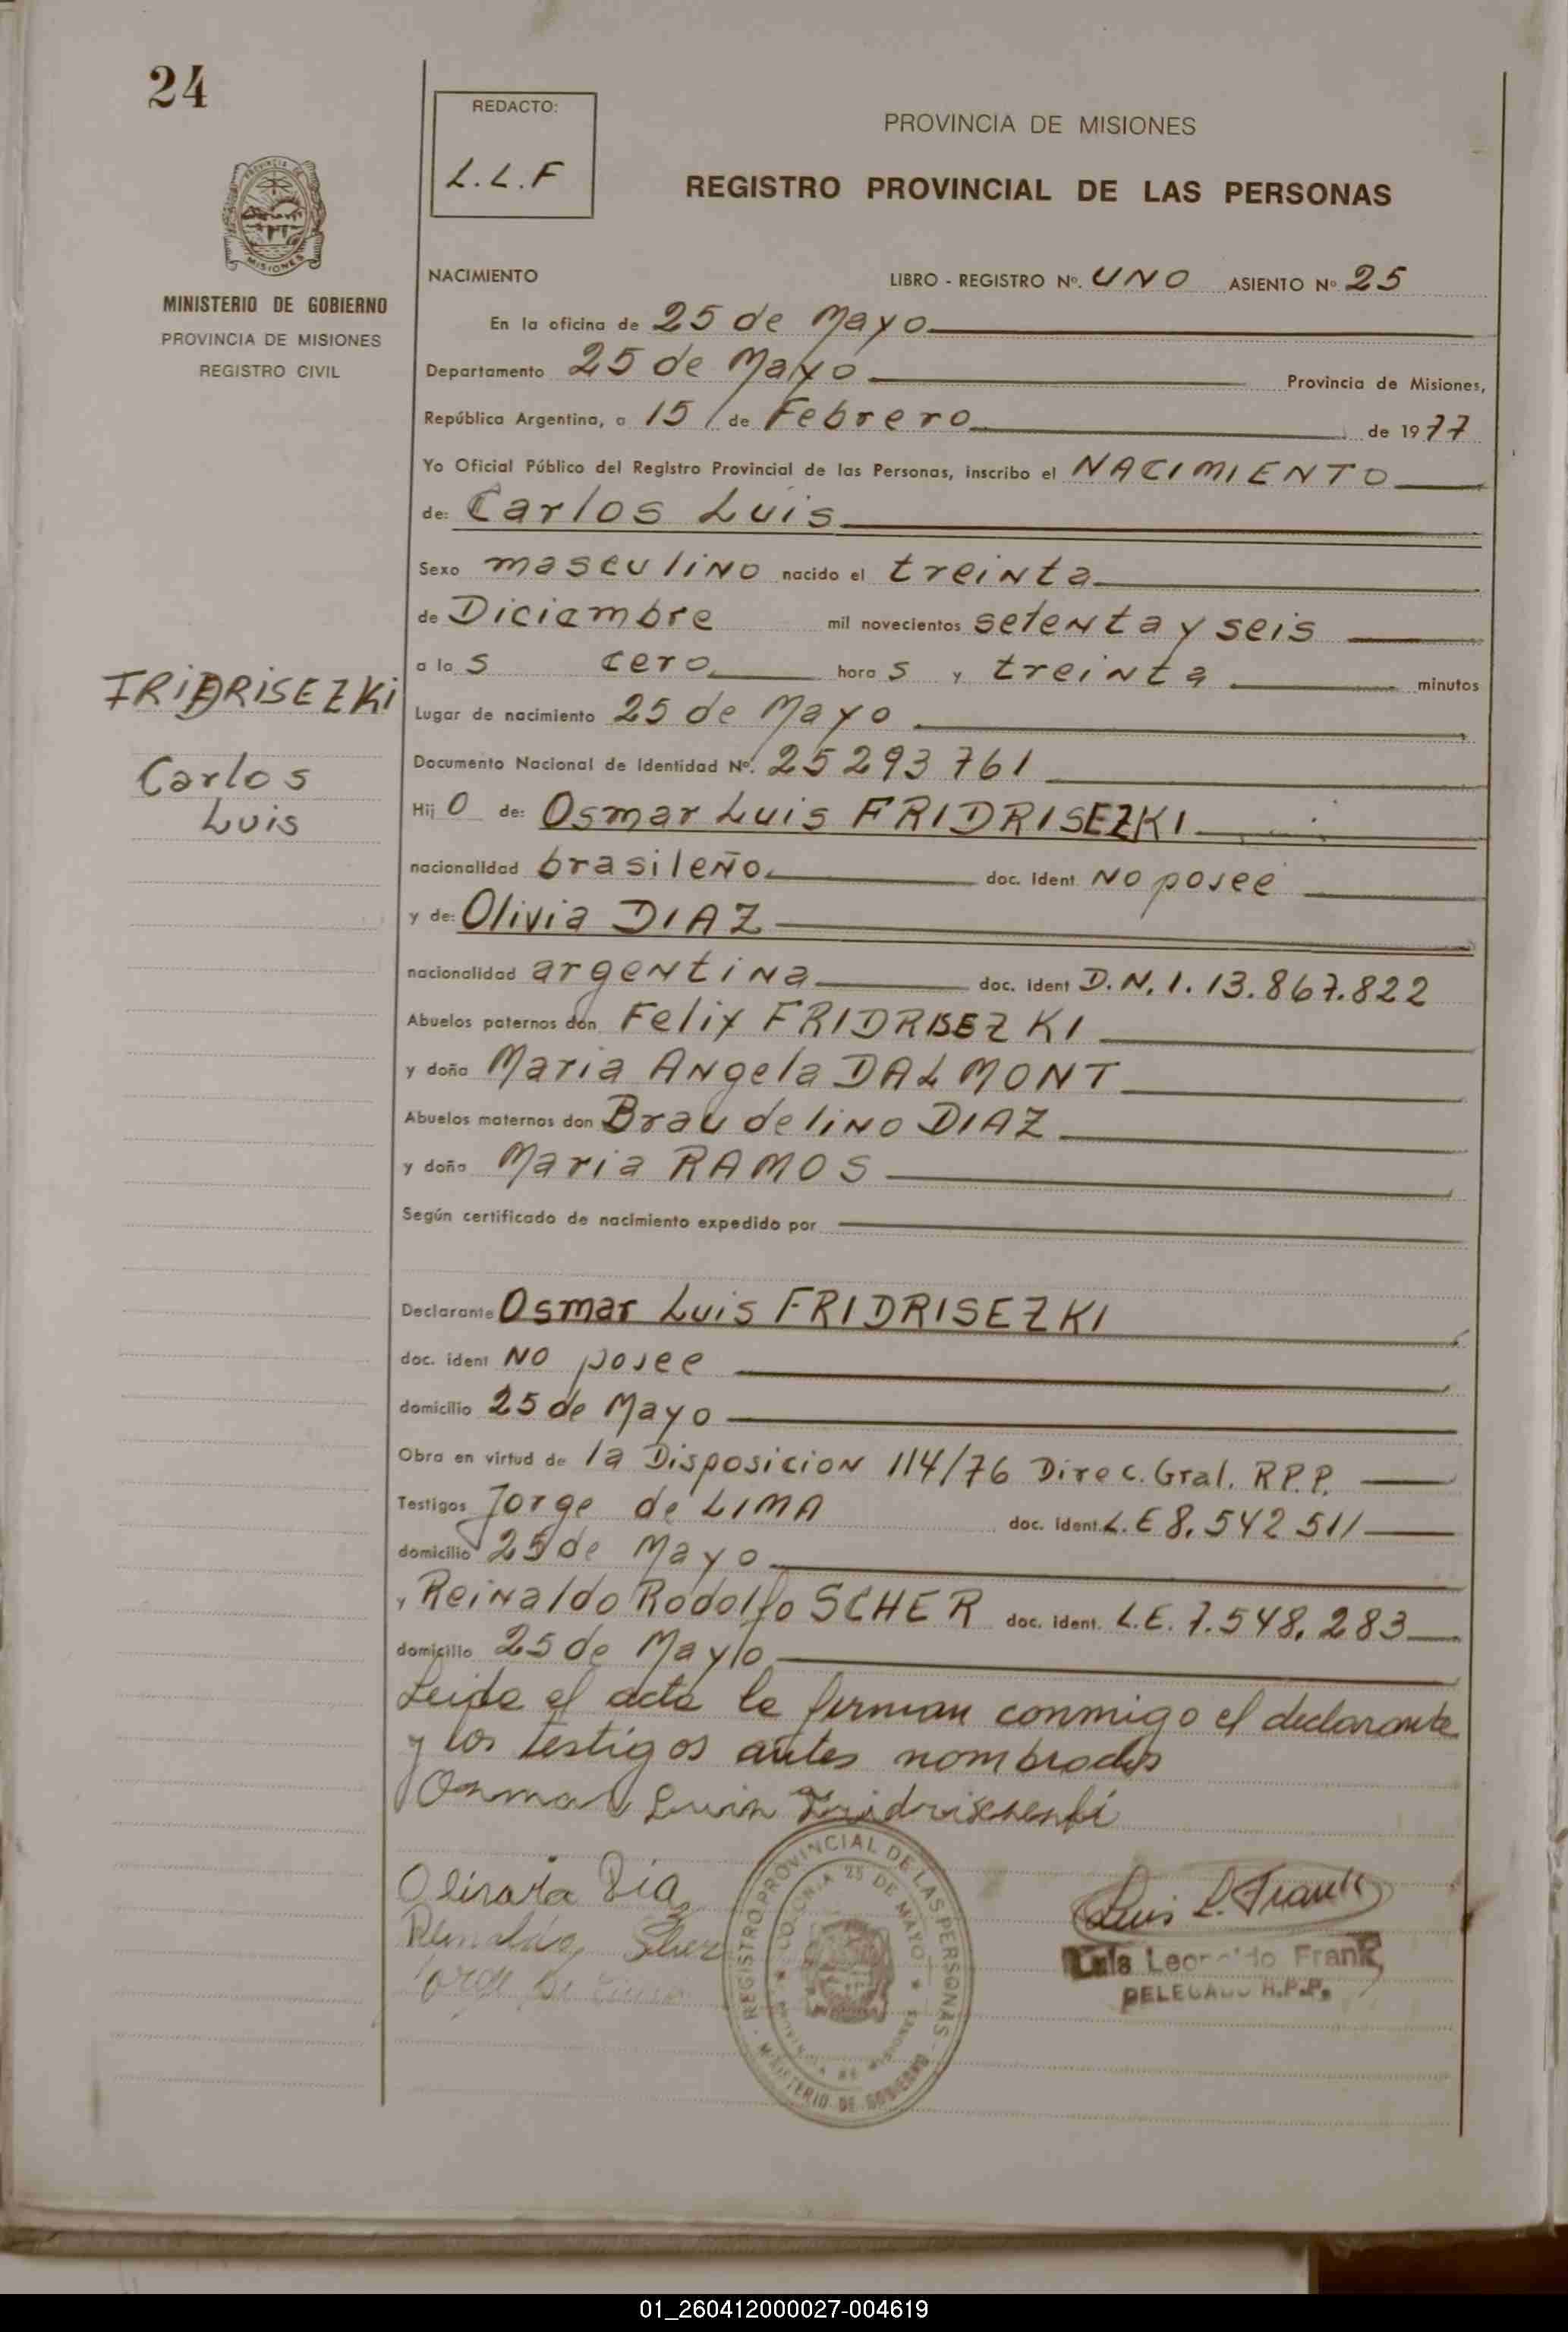 24
REDACTO:
L.L.F
PROVINCIA DE MISIONES
REGISTRO PROVINCIAL DE LAS PERSONAS
PROVINCIA DE
MISIONES
MINISTERIO DE GOBIERNO
PROVINCIA DE MISIONES
REGISTRO CIVIL
NACIMIENTO LIBRO - REGISTRO Nº. UNO ASIENTO Nº 25
En la oficina de 25 de Mayo
Departamento 25 de Mayo Provincia de Misiones,
República Argentina, a 15 de Febrero de 1977
Yo Oficial Público del Registro Provincial de las Personas, inscribo el NACIMIENTO
de: Carlos Luis
Sexo masculino nacido el treinta
de Diciembre mil novecientos setenta y seis
a las cero horas y treinta minutos
FRIDRISEZKI
Carlos
Luis
Lugar de nacimiento 25 de Mayo
Documento Nacional de Identidad Nº. 25293761
Hijo de: Osmar Luis FRIDRISEZKI
nacionalidad brasileño doc. ident No posee
y de: Olivia DIAZ
nacionalidad argentina doc. ident D.N.I. 13.867.822
Abuelos paternos don Felix FRIDRISEZKI
y doña Maria Angela DALMONT
Abuelos maternos don Braudelino DIAZ
y doña Maria RAMOS
Según certificado de nacimiento expedido por
Declarante Osmar Luis FRIDRISEZKI
doc. ident No posee
domicilio 25 de Mayo
Obra en virtud de la Disposicion 114/76 Direc. Gral. R.P.P.
Testigos Jorge de LIMA doc. ident. L.E 8.542511
domicilio 25 de Mayo
y Reinaldo Rodolfo SCHER doc. ident. L.E. 7.548.283
domicilio 25 de Mayo
Leida el acta la firman conmigo el declarante
y los testigos antes nombrados
Osmar Luis
Diaz
Luis L. Frank
Luis Leopoldo Frank
DELEGADO R.P.P.
REGISTRO PROVINCIAL DE LAS PERSONAS - MINISTERIO DE GOBIERNO
COLONIA 25 DE MAYO
01_260412000027-004619